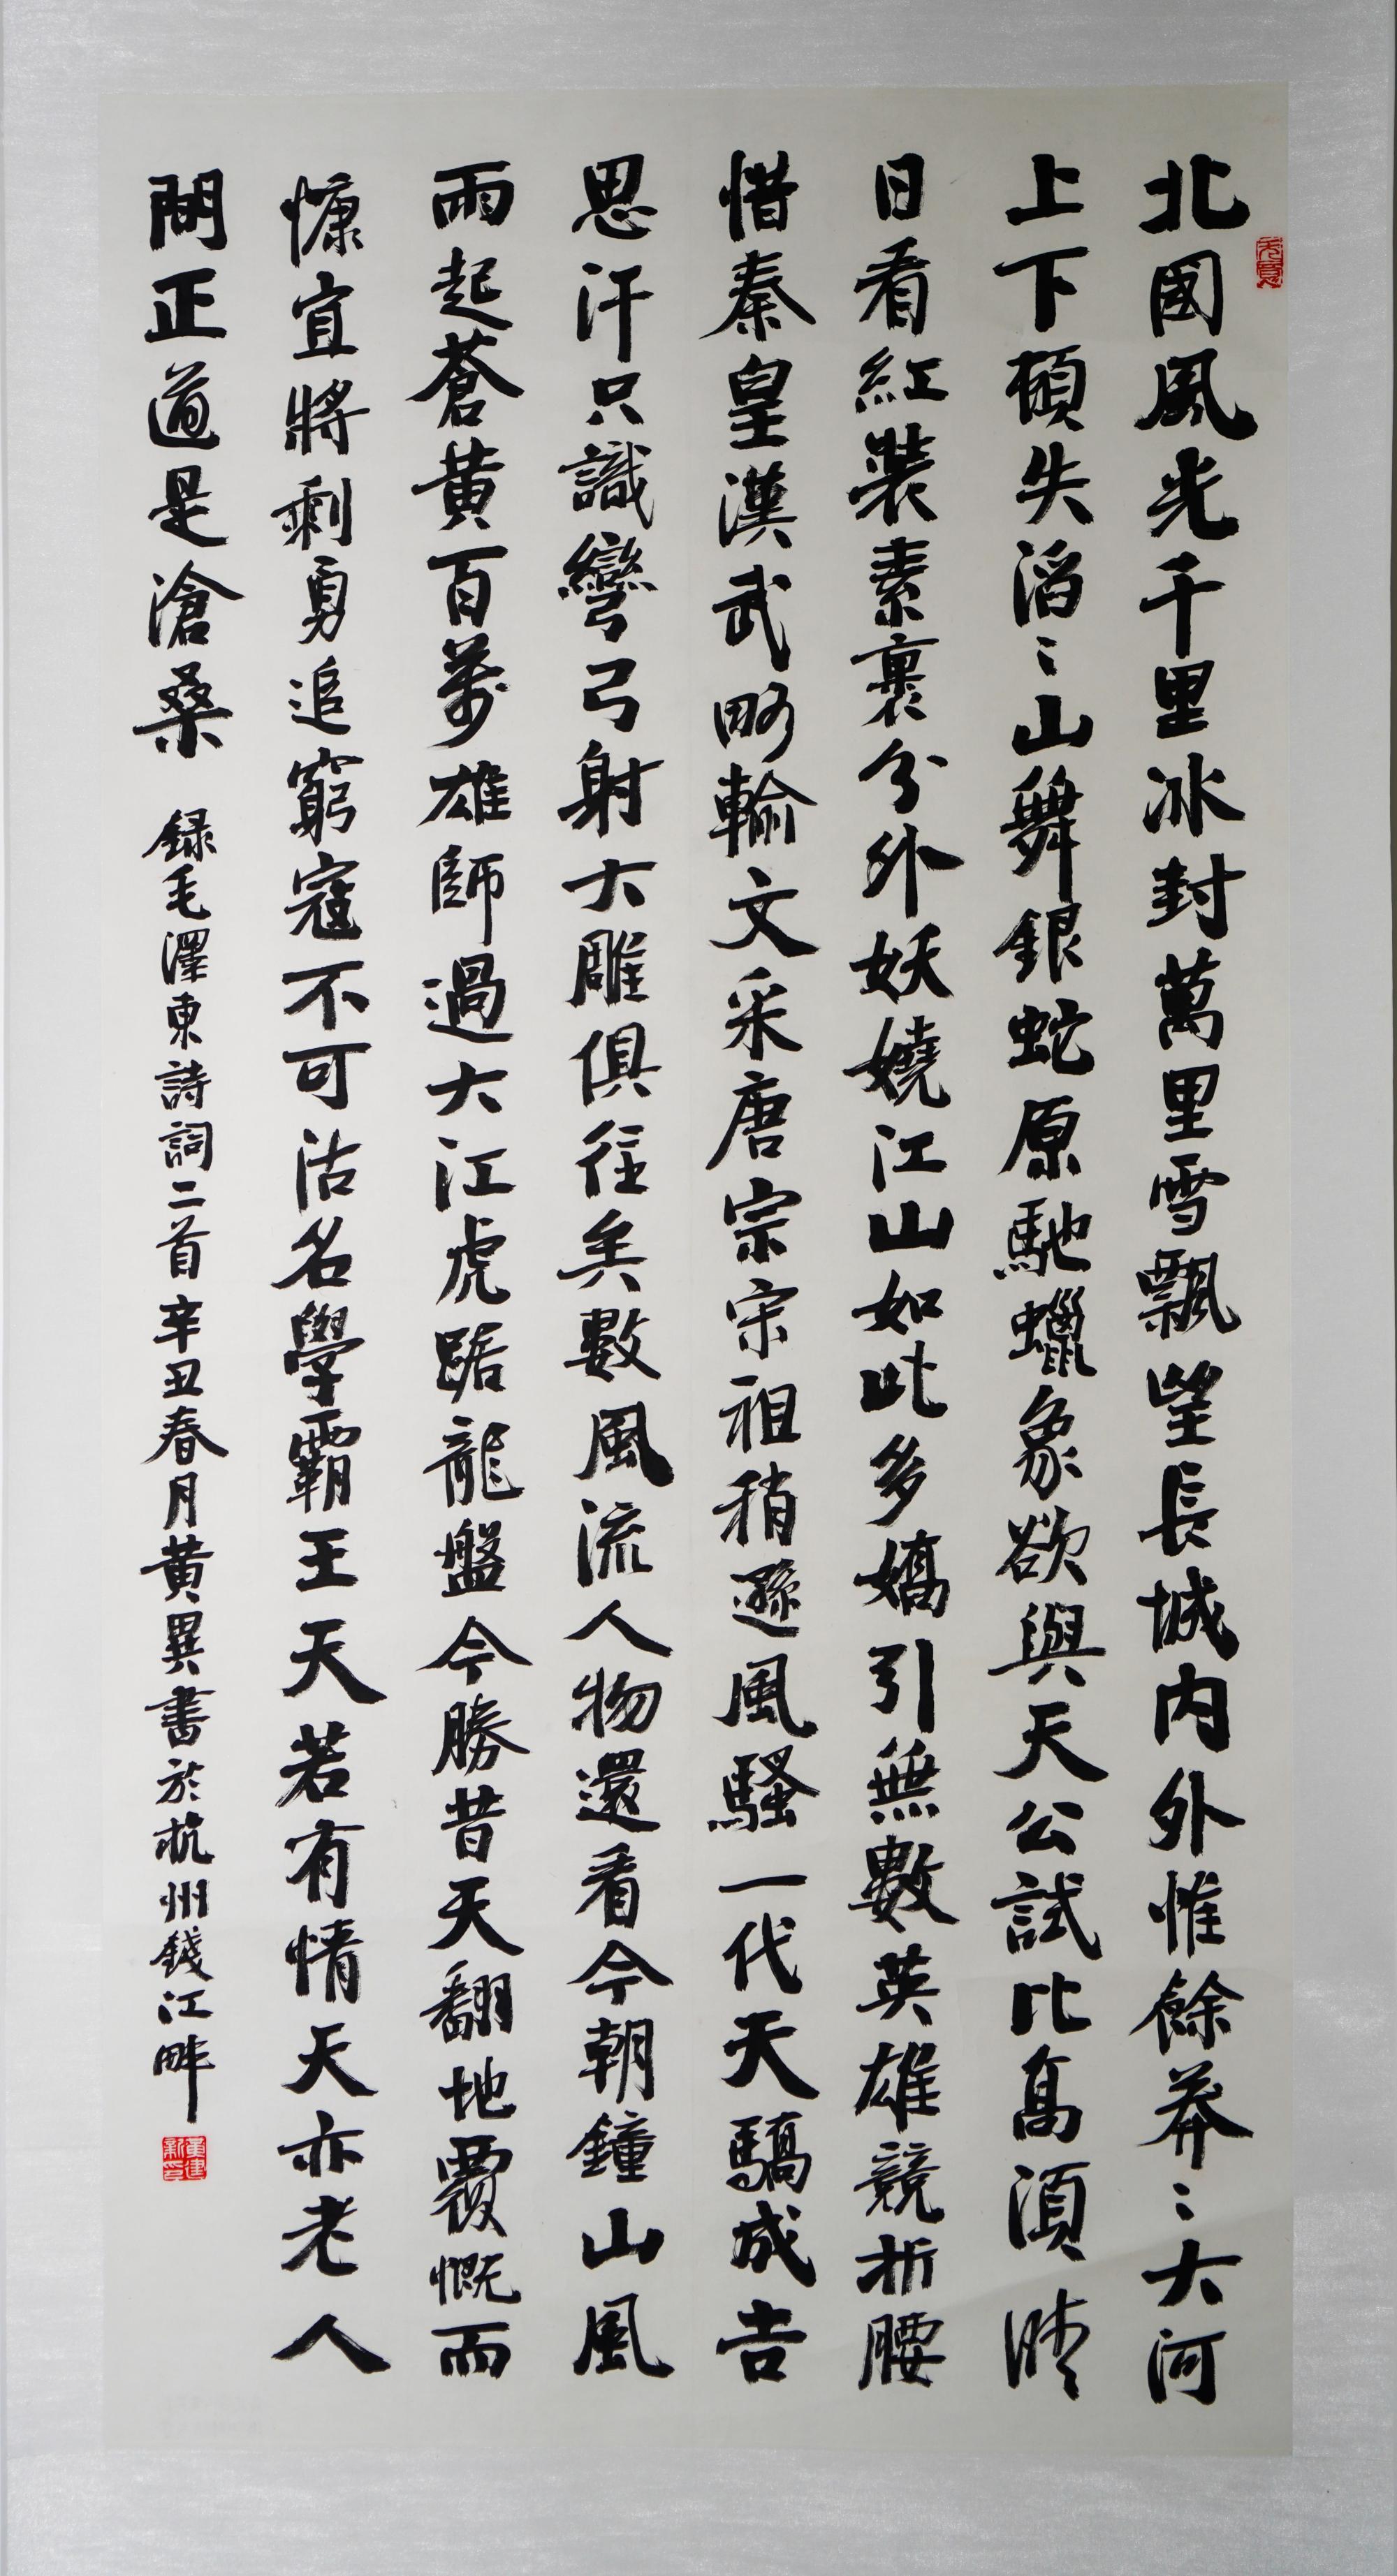 北國風光千里冰封萬里雪飄望長城内外惟餘莽〻大河
上下頓失滔〻山舞銀蛇原馳蠟象欲與天公試比高須晴
日看紅裝素裹分外妖嬈江山如此多嬌引無數英雄競折腰
惜秦皇漢武略輸文采唐宗宋祖稍遜風騷一代天驕成吉
思汗只識彎弓射大雕俱往矣數風流人物還看今朝鐘山風
雨起蒼黄百萬雄師過大江虎踞龍盤今勝昔天翻地覆慨而
慷宜將剩勇追窮寇不可沽名學霸王天若有情天亦老人
間正道是滄桑 録毛澤東詩詞二首辛丑春月黄異書於杭州錢江畔